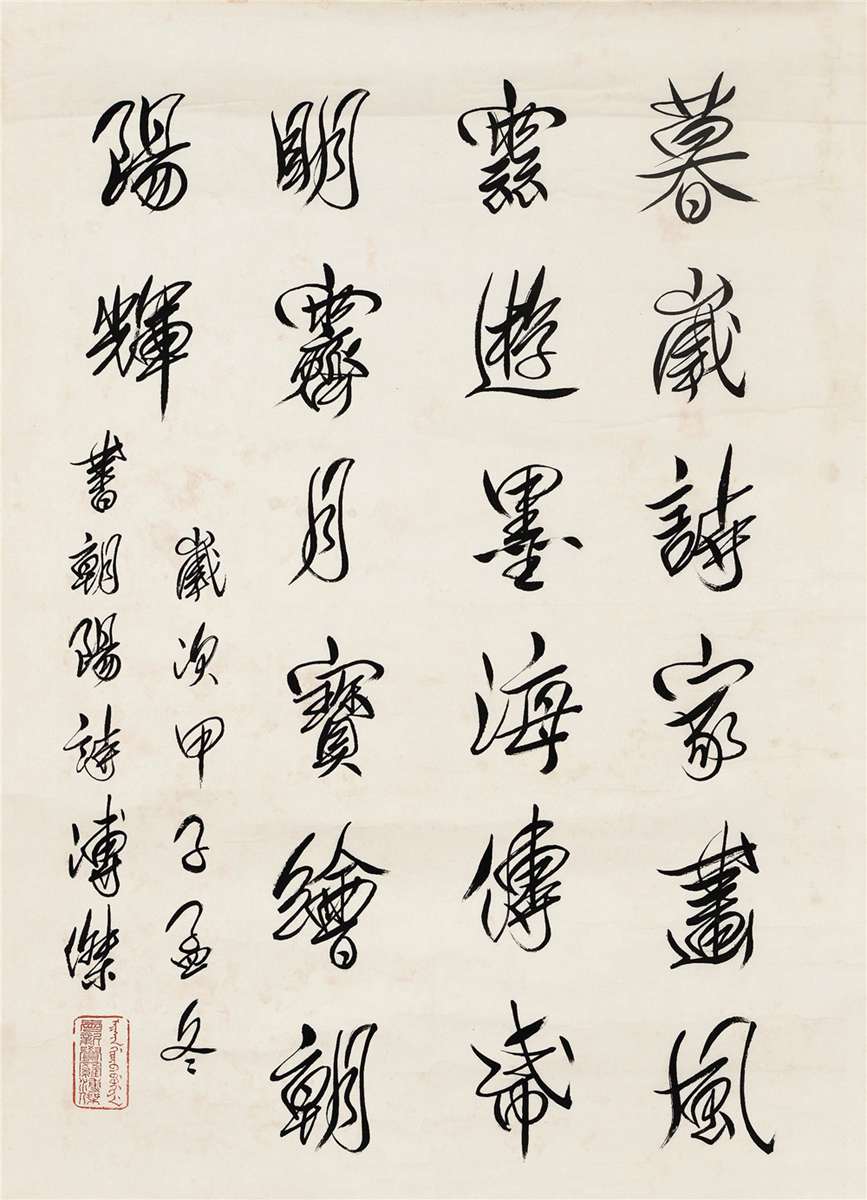 暮歲詩家畫風
遊墨海傳
明霽月寶繪朝
陽輝
歲次甲子孟冬
書朝陽詩溥傑
愛新覺羅溥傑